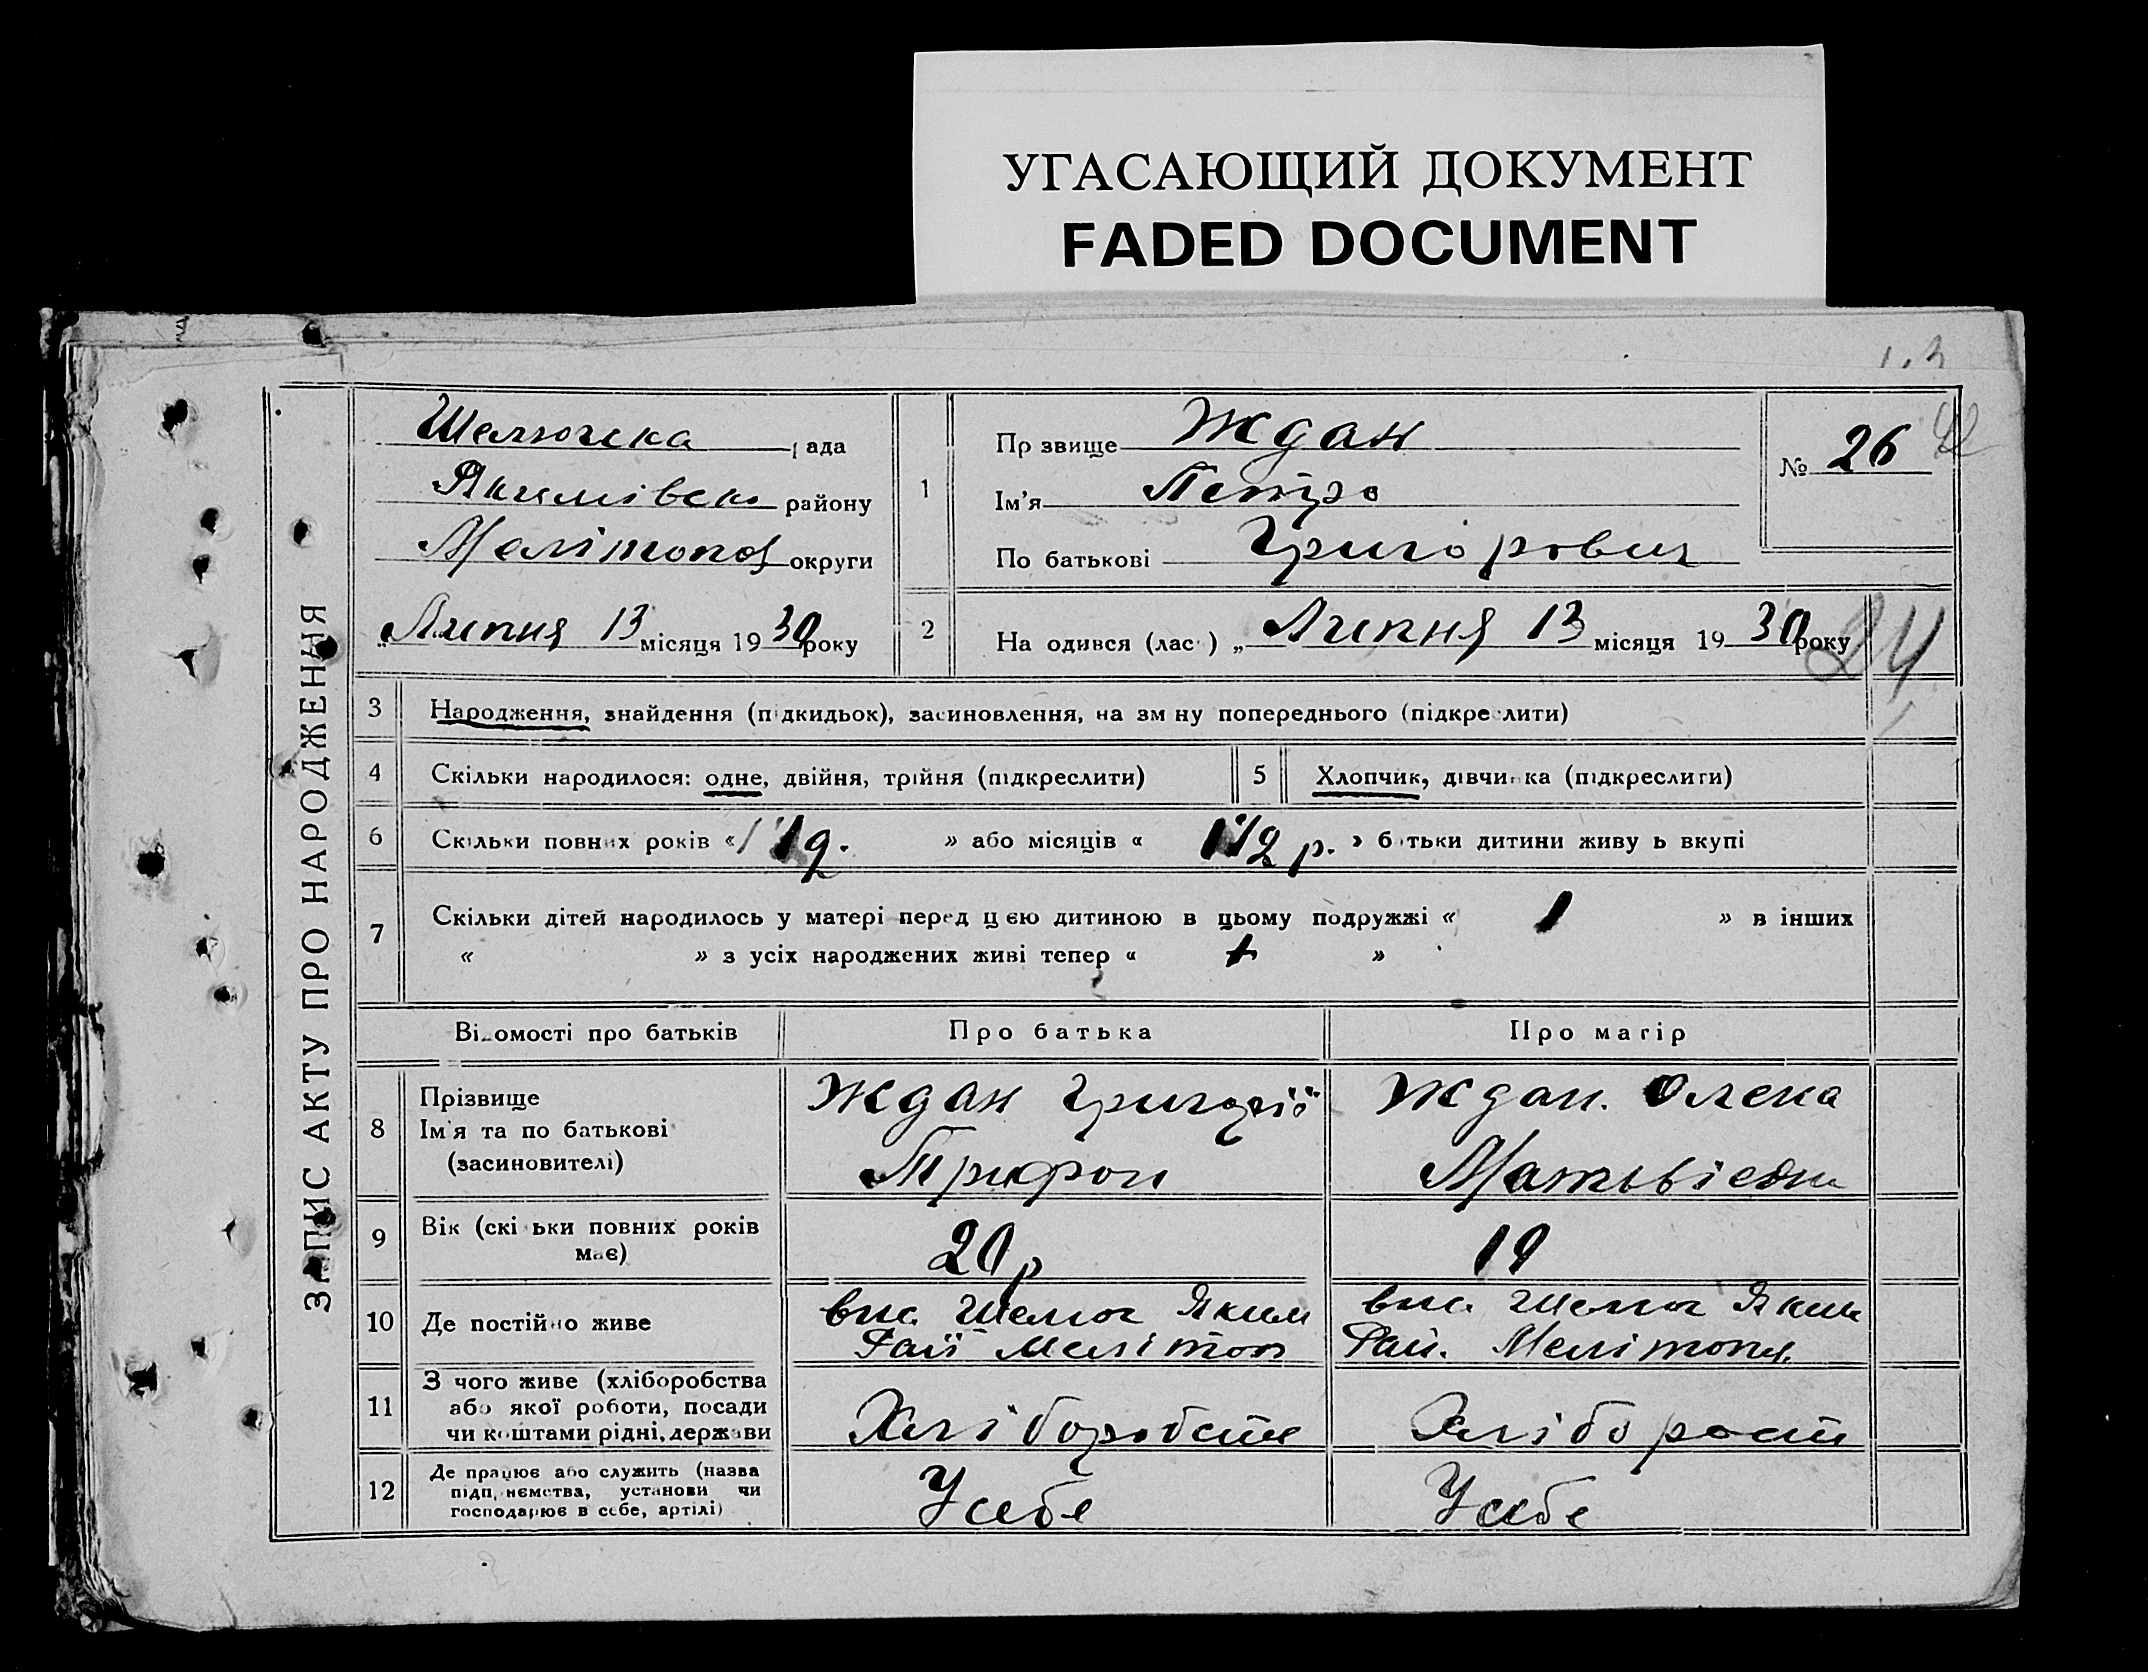 УГАСАЮЩИЙ ДОКУМЕНТ
FADED DOCUMENT
ЗАПИС АКТУ ПРО НАРОДЖЕННЯ
Шелюгска рада
Якимівськ району
Мелітопол округи
„Липня 13 місяця 1930 року
1
Прзвище Ждан
Ім'я Петро
По батькові Григорович
№ 26
42
2
Наодився (лас) „Липня 13 місяця 1930 року
24
3 Народження, знайдення (підкидьок), засиновлення, на зміну попереднього (підкреслити)
4 Скільки народилося: одне, двійня, трійня (підкреслити) 5 Хлопчик, дівчинка (підкреслити)
6 Скільки повних років « » або місяців « 1 1/2 р. » батьки дитини живуть вкупі
7 Скільки дітей народилось у матері перед цією дитиною в цьому подружжі « 1 » в інших
« » з усіх народжених живі тепер « »
Відомості про батьків Про батька Про матір
8 Прізвище
Ім'я та по батькові
(засиновителі)
Ждан Григорій
Трифон
Ждан. Олена
Матьвієвна
9 Вік (скільки повних років
має)
20 р
19
10 Де постійно живе
вис. Шелюг Яким
Рай Мелітоп
вис. Шелюг Яким
Рай. Мелітопл.
11 З чого живе (хліборобства
або якої роботи, посади
чи коштами рідні, держави
Хліборобств
Хліборост
12 Де працює або служить (назва
підприємства, установи чи
господарює в себе, артілі)
У себе
У себе